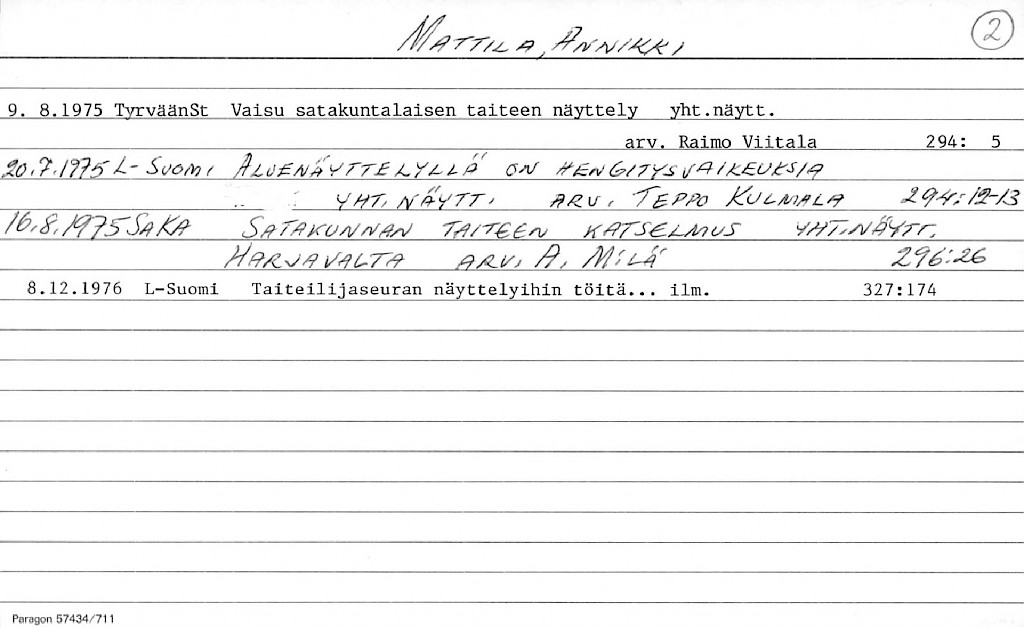 MATTILA, ANNIKKI
2
9. 8.1975 TyrväänSt Vaisu satakuntalaisen taiteen näyttely yht.näytt.
arv. Raimo Viitala 294: 5
20.7.1975 L-SUOMI ALUENÄYTTELYLLÄ ON HENGITYSVAIKEUKSIA
YHT. NÄYTT. ARV. TEPPO KULMALA 294:12-13
16.8.1975 SAKA SATAKUNNAN TAITEEN KATSELMUS YHT.NÄYTT.
HARJAVALTA ARV. A. MILÄ 296:26
8.12.1976 L-Suomi Taiteilijaseuran näyttelyihin töitä... ilm. 327:174
Paragon 57434/711